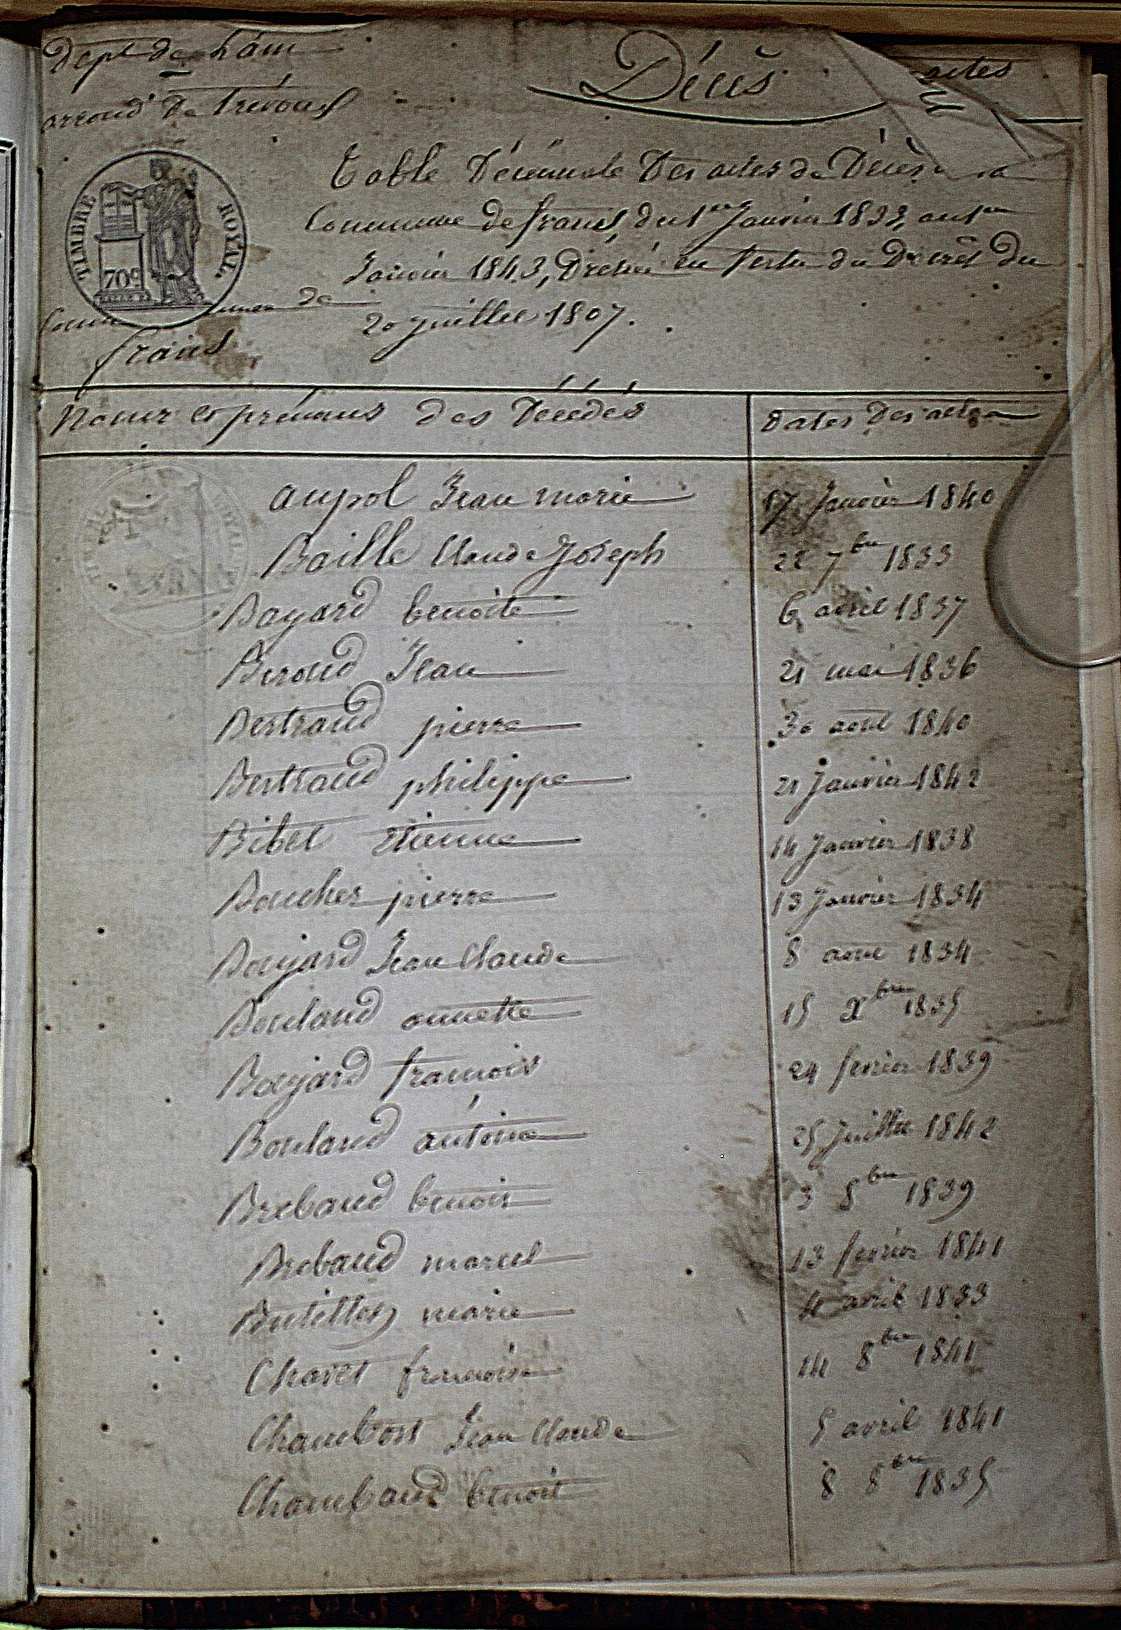 Dept de l'ain
Décès
actes
arrond^t De trévoux
TIMBRE ROYAL
70c
Table Décennale Des actes de Décès
Commune de frans, du 1er Janvier 1833, au 1er
Janvier 1843, Dressée en Vertu du Décrèt du
20 juillet 1807.
Commune de
frans
Noms et prénoms des Décédés
dates Des actes
aupol Jean marie 17 Janvier 1840
Baille Claude Joseph 22 7bre 1833
Bayard benoite 6 avril 1837
Beroud Jean 21 mai 1836
Bertrand pierre 30 aout 1840
Bertrand philippe 21 Janvier 1842
Bibet etienne 14 Janvier 1838
Boucher pierre 13 Janvier 1834
Boujard Jean Claude 8 aout 1834
Bouland annette 15 Xbre 1835
Boujard francois 24 fevrier 1839
Bouland antoine 25 Juillet 1842
Brebaud benoit 3 8bre 1839
Brebaud marcel 13 fevrier 1841
marie 4 avril 1833
Chavet francoise 14 8bre 1841
Chambost Jean Claude 5 avril 1841
Chambaud benoit 8 8bre 1835